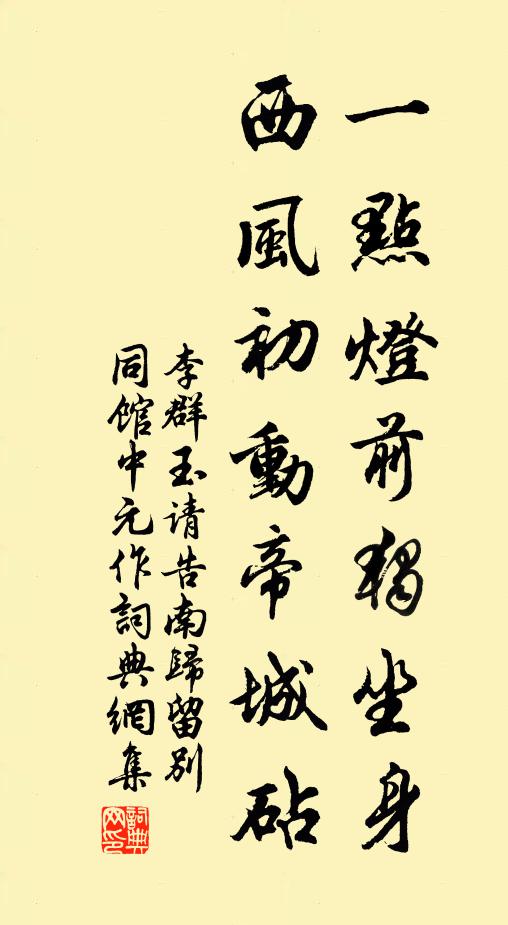 一點燈前獨坐身
西風初動帝城砧
李群玉请告南歸留別
同館中元作詞典網集
詞典網印